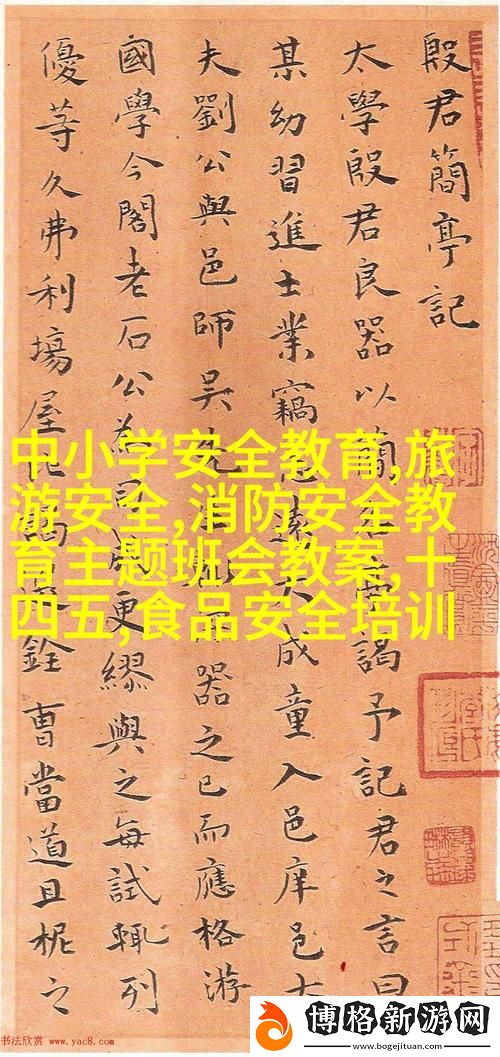 殷君簡亭記
太學殷君良器以簡謁予記君之言曰
某幼習進士業竊遠大成童入邑庠邑大
夫劉公與邑師吳先器之已而應格游
國學今閣老石公為更繆與之每試輒列
優等久弗利場屋銓曹當道且柅之
中小学安全教育,旅
游安全,消防安全教
育主题班会教案,十
四五,食品安全培训
书法欣赏 www.yac8.com
博格新游网
www.bogejituan.com